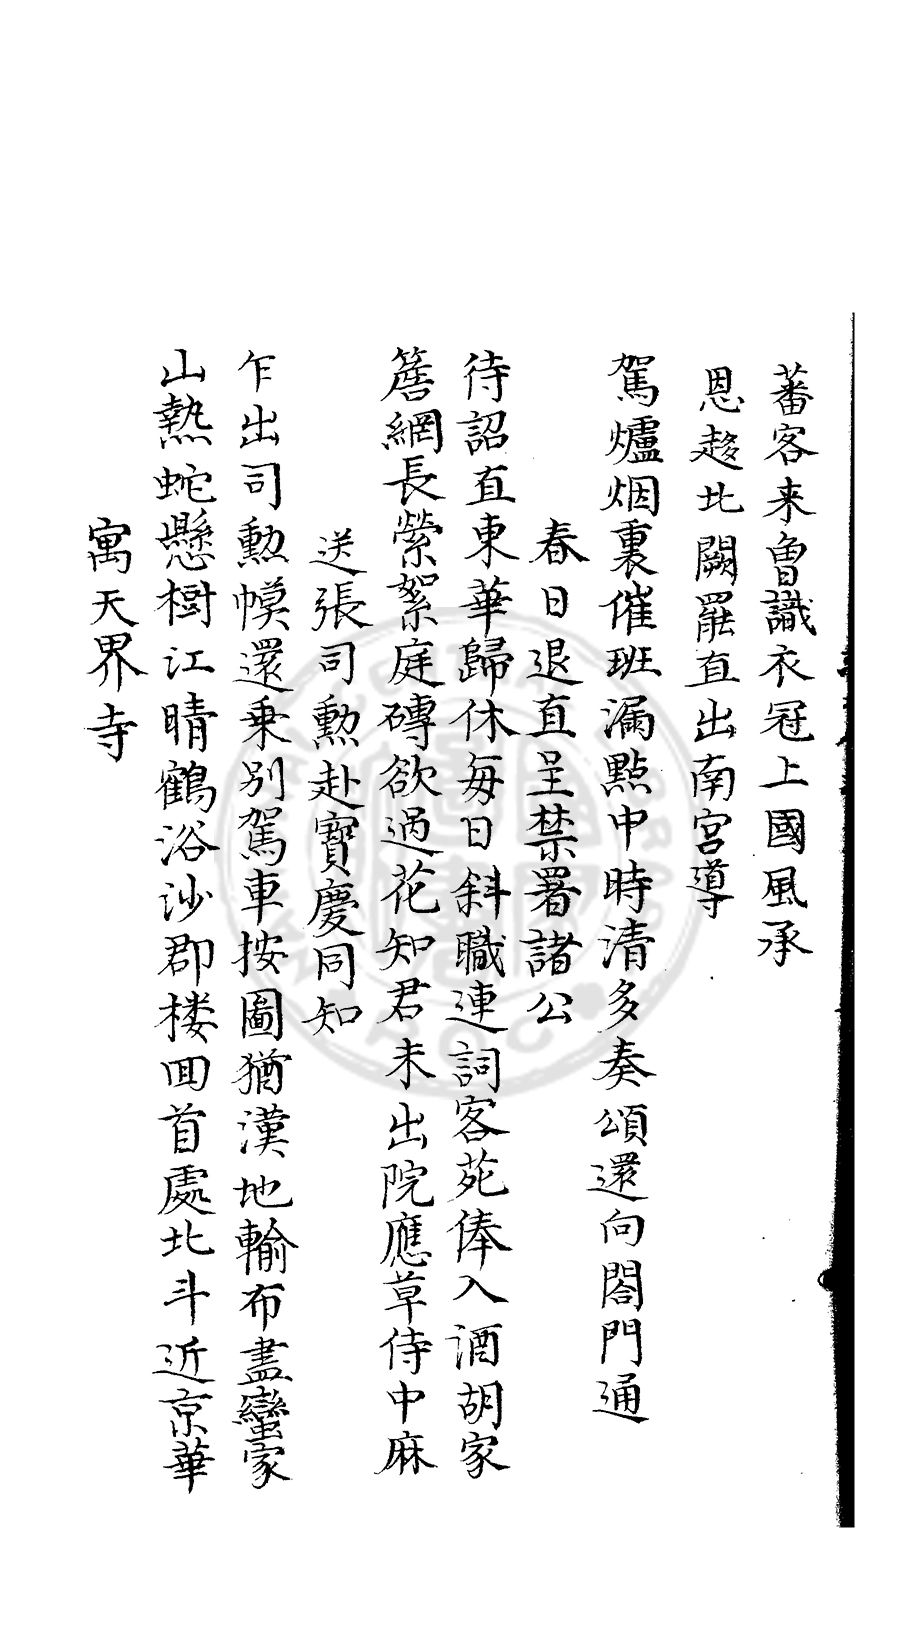 蕃客来魯識衣冠上國風承
恩趍北闕罷直出南宮導
駕爐烟裏催班漏點中時清多奏頌還向閤門通
春日退直呈禁署諸公
待詔直東華歸休每日斜職連詞客苑俸入酒胡家
簷網長縈絮庭磚欲過花知君未出院應草侍中麻
送張司勲赴寶慶同知
乍出司勲幙還乗别駕車按圖猶漢地輸布盡蠻家
山熱蛇懸樹江晴鶴浴沙郡楼回首處北斗近京華
寓天界寺